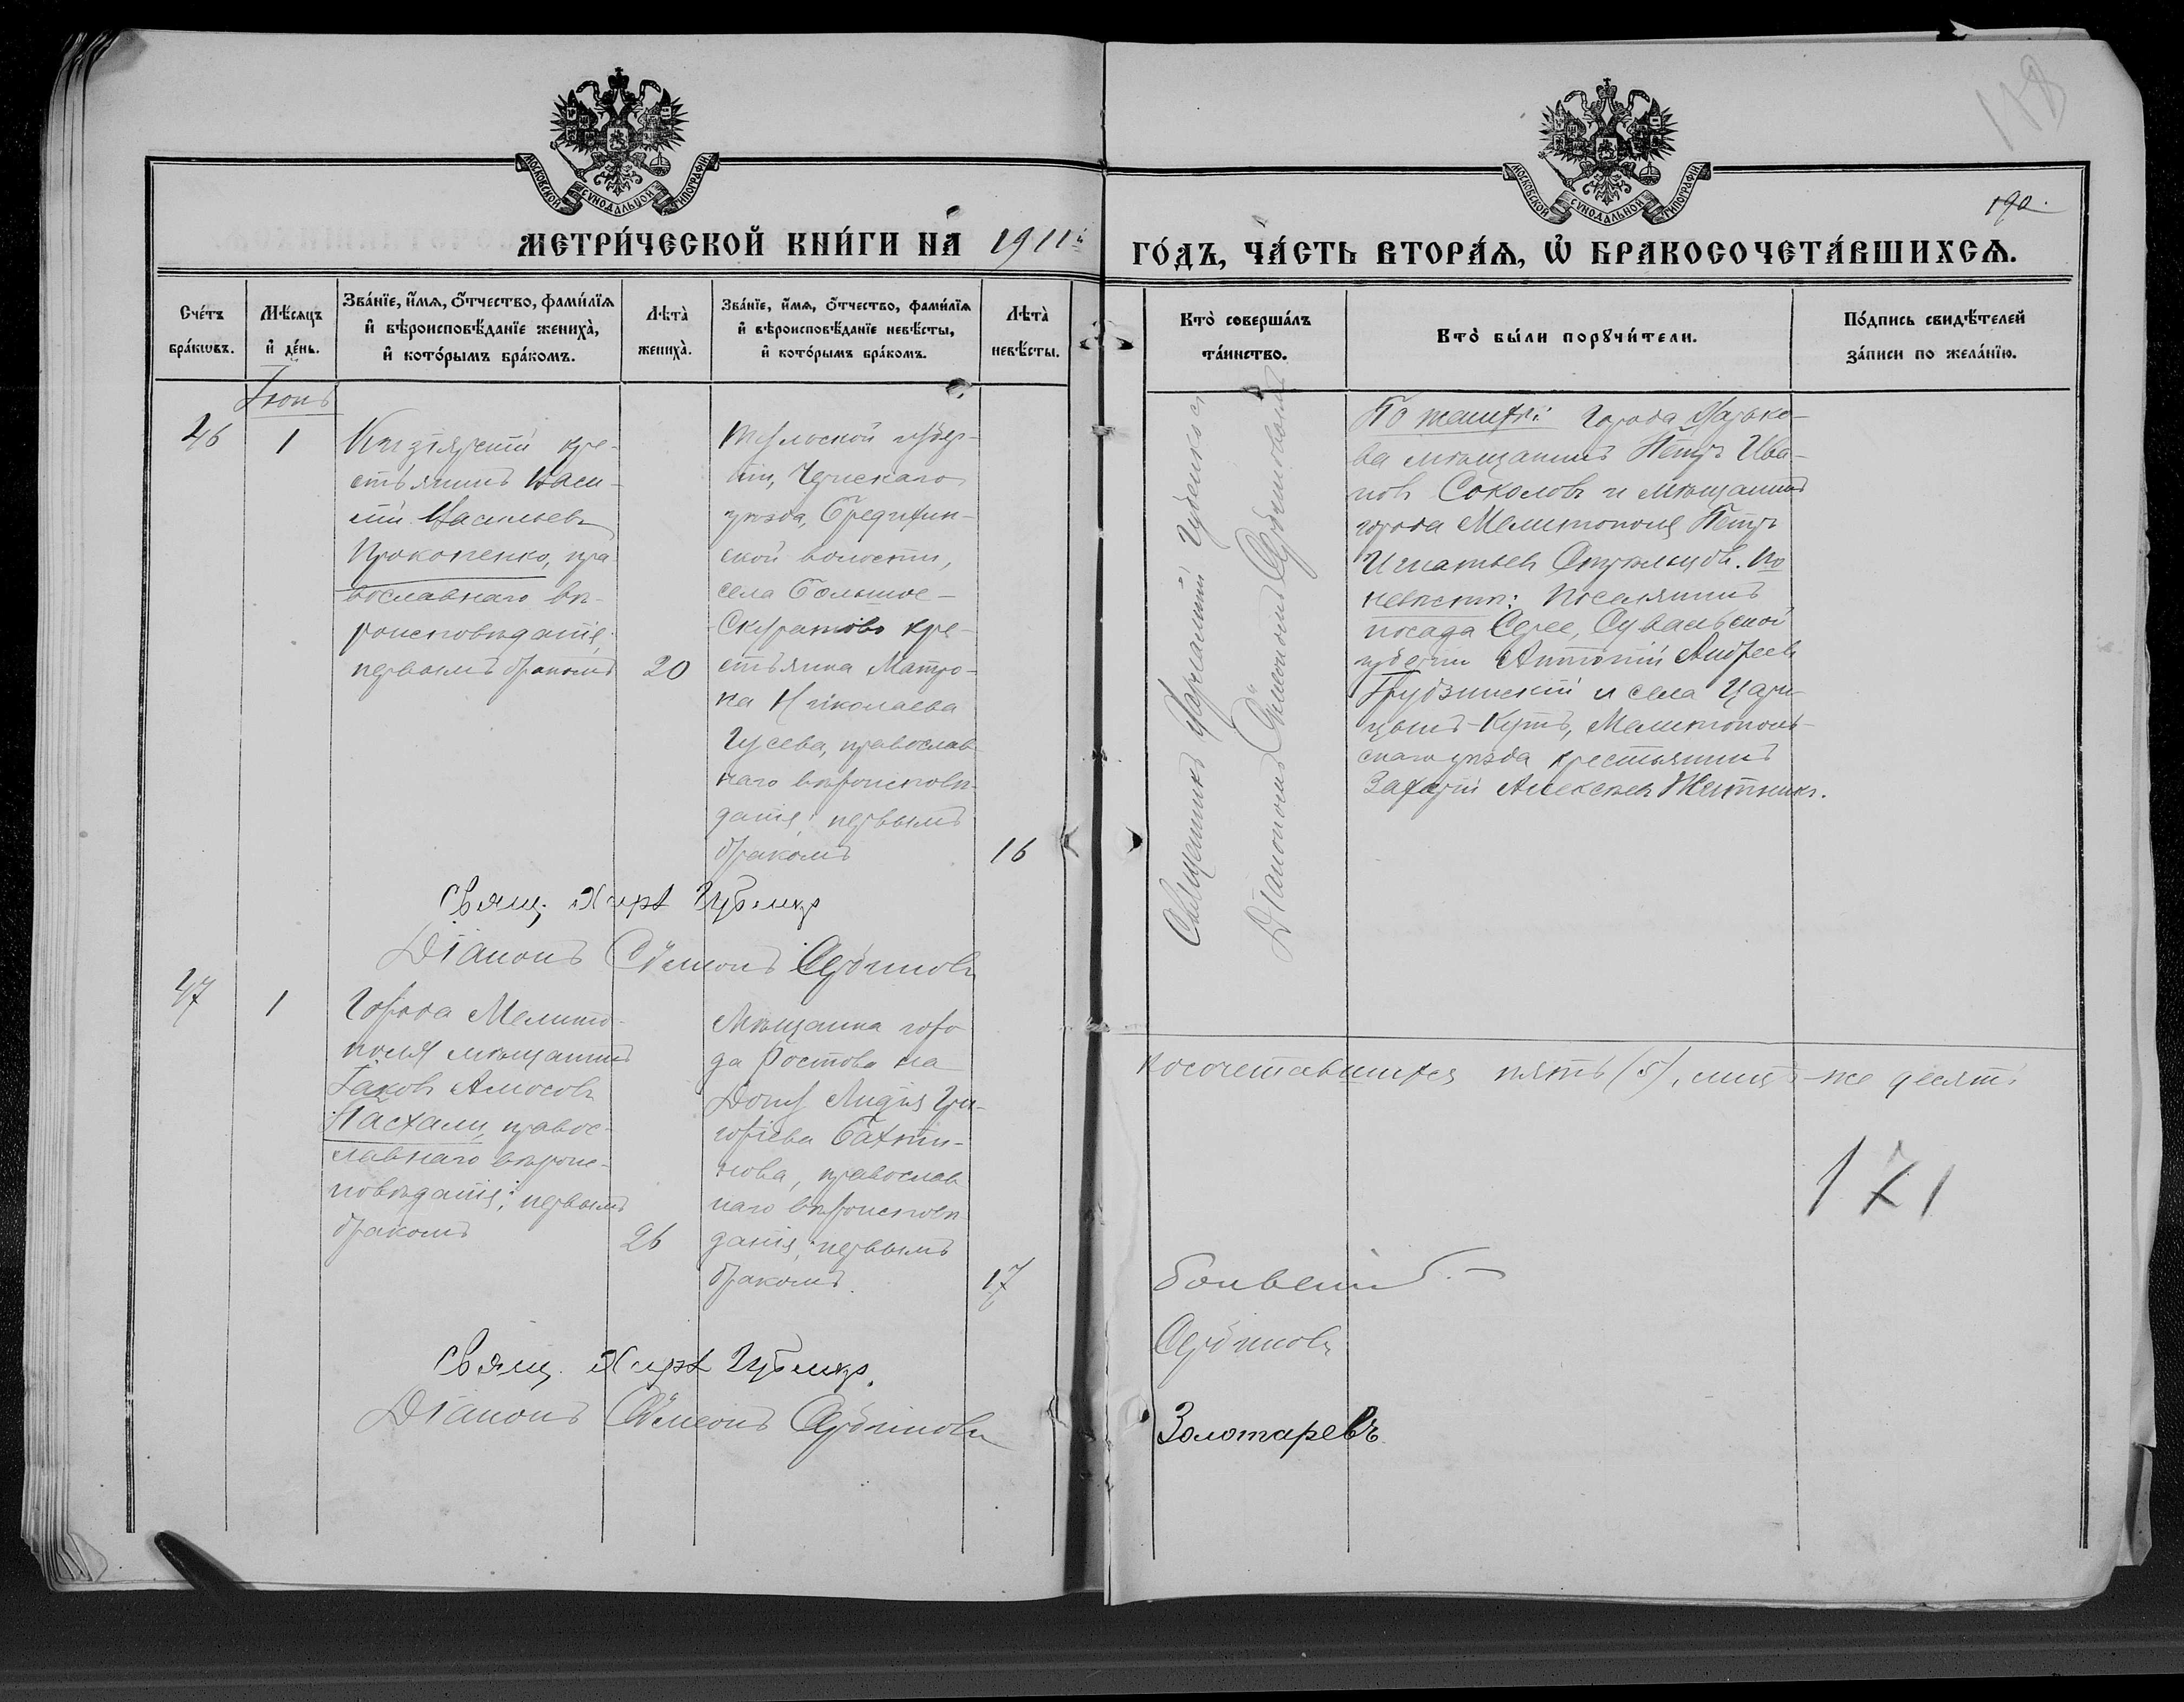 118
190.
МОСКОВСКОЙ СѴНОДАЛЬНОЙ ТИПОГРАФІИ
МОСКОВСКОЙ СѴНОДАЛЬНОЙ ТИПОГРАФІИ
МЕТРИ́ЧЕСКОЙ КНИ́ГИ НА̀ 1911й
ГО́ДЪ, ЧА́СТЬ ВТОРА́Ѧ, Ѡ҆ БРАКОСОЧЕТА́ВШИХСѦ.
Сче́тъ бра́кѡвъ.
Мѣ́сяцъ и҆ де́нь.
Зва́нїе, и҆́мѧ, ѻ҆́тчество, фами́лїѧ
и҆ вѣроисповѣ́данїе жениха̀,
и҆ кото́рымъ бра́комъ.
Лѣта̀ жениха̀.
Зва́нїе, и҆́мѧ, ѻ҆́тчество, фами́лїѧ
и҆ вѣроисповѣ́данїе невѣ́сты,
и҆ кото́рымъ бра́комъ.
Лѣта̀ невѣ́сты.
Кто̀ соверша́лъ та́инство.
Кто̀ бы́ли порꙋчи́тели.
По́дпись свидѣ́телей за́писи по жела́нїю.
Іюнь
46
1
кре-
стьянинъ Васи-
лій Васильевъ
Прокопенко, пра-
вославнаго вѣ-
роисповѣданія,
первымъ бракомъ
20
Тульской губер-
ніи, Чернскаго
уѣзда,
ской волости,
села Большое-
Скуратово кре-
стьянка Матро-
на Николаева
Гусева, православ-
наго вѣроисповѣ-
данія, первымъ
бракомъ
16
Свящ. Хар.
Діаконъ Симеонъ Сербиновъ
Священникъ Харлампій Губенко и
Діаконъ Симеонъ Сербиновъ
По женихѣ: города Харько-
ва мѣщанинъ Петръ Ива-
новъ Соколовъ и мѣщанинъ
города Мелитополя Петръ
Игнатьевъ Стрѣльцовъ. По
невѣстѣ: поселянинъ
посада Сереє, Сувальской
губерніи Антоній Андреевъ
Грудзинскій и села Цари-
цынъ-Кутъ, Мелитополь-
скаго уѣзда крестьянинъ
Захарій Алексѣевъ Житникъ.
47
1
Города Мелито-
поля мѣщанинъ
Іаковъ Амосовъ
Пахали, правос-
лавнаго вѣроис-
повѣданія, первымъ
бракомъ
26
Мѣщанка горо-
да Ростова на
Дону Лидія Гри-
горіева Бахти-
нова, православ-
наго вѣроисповѣ-
данія, первымъ
бракомъ.
17
Свящ. Хар.
Діаконъ Симеонъ Сербиновъ
косочетавшихся пять (5), лицъ-же десять
171
Сербиновъ
Золотаревъ